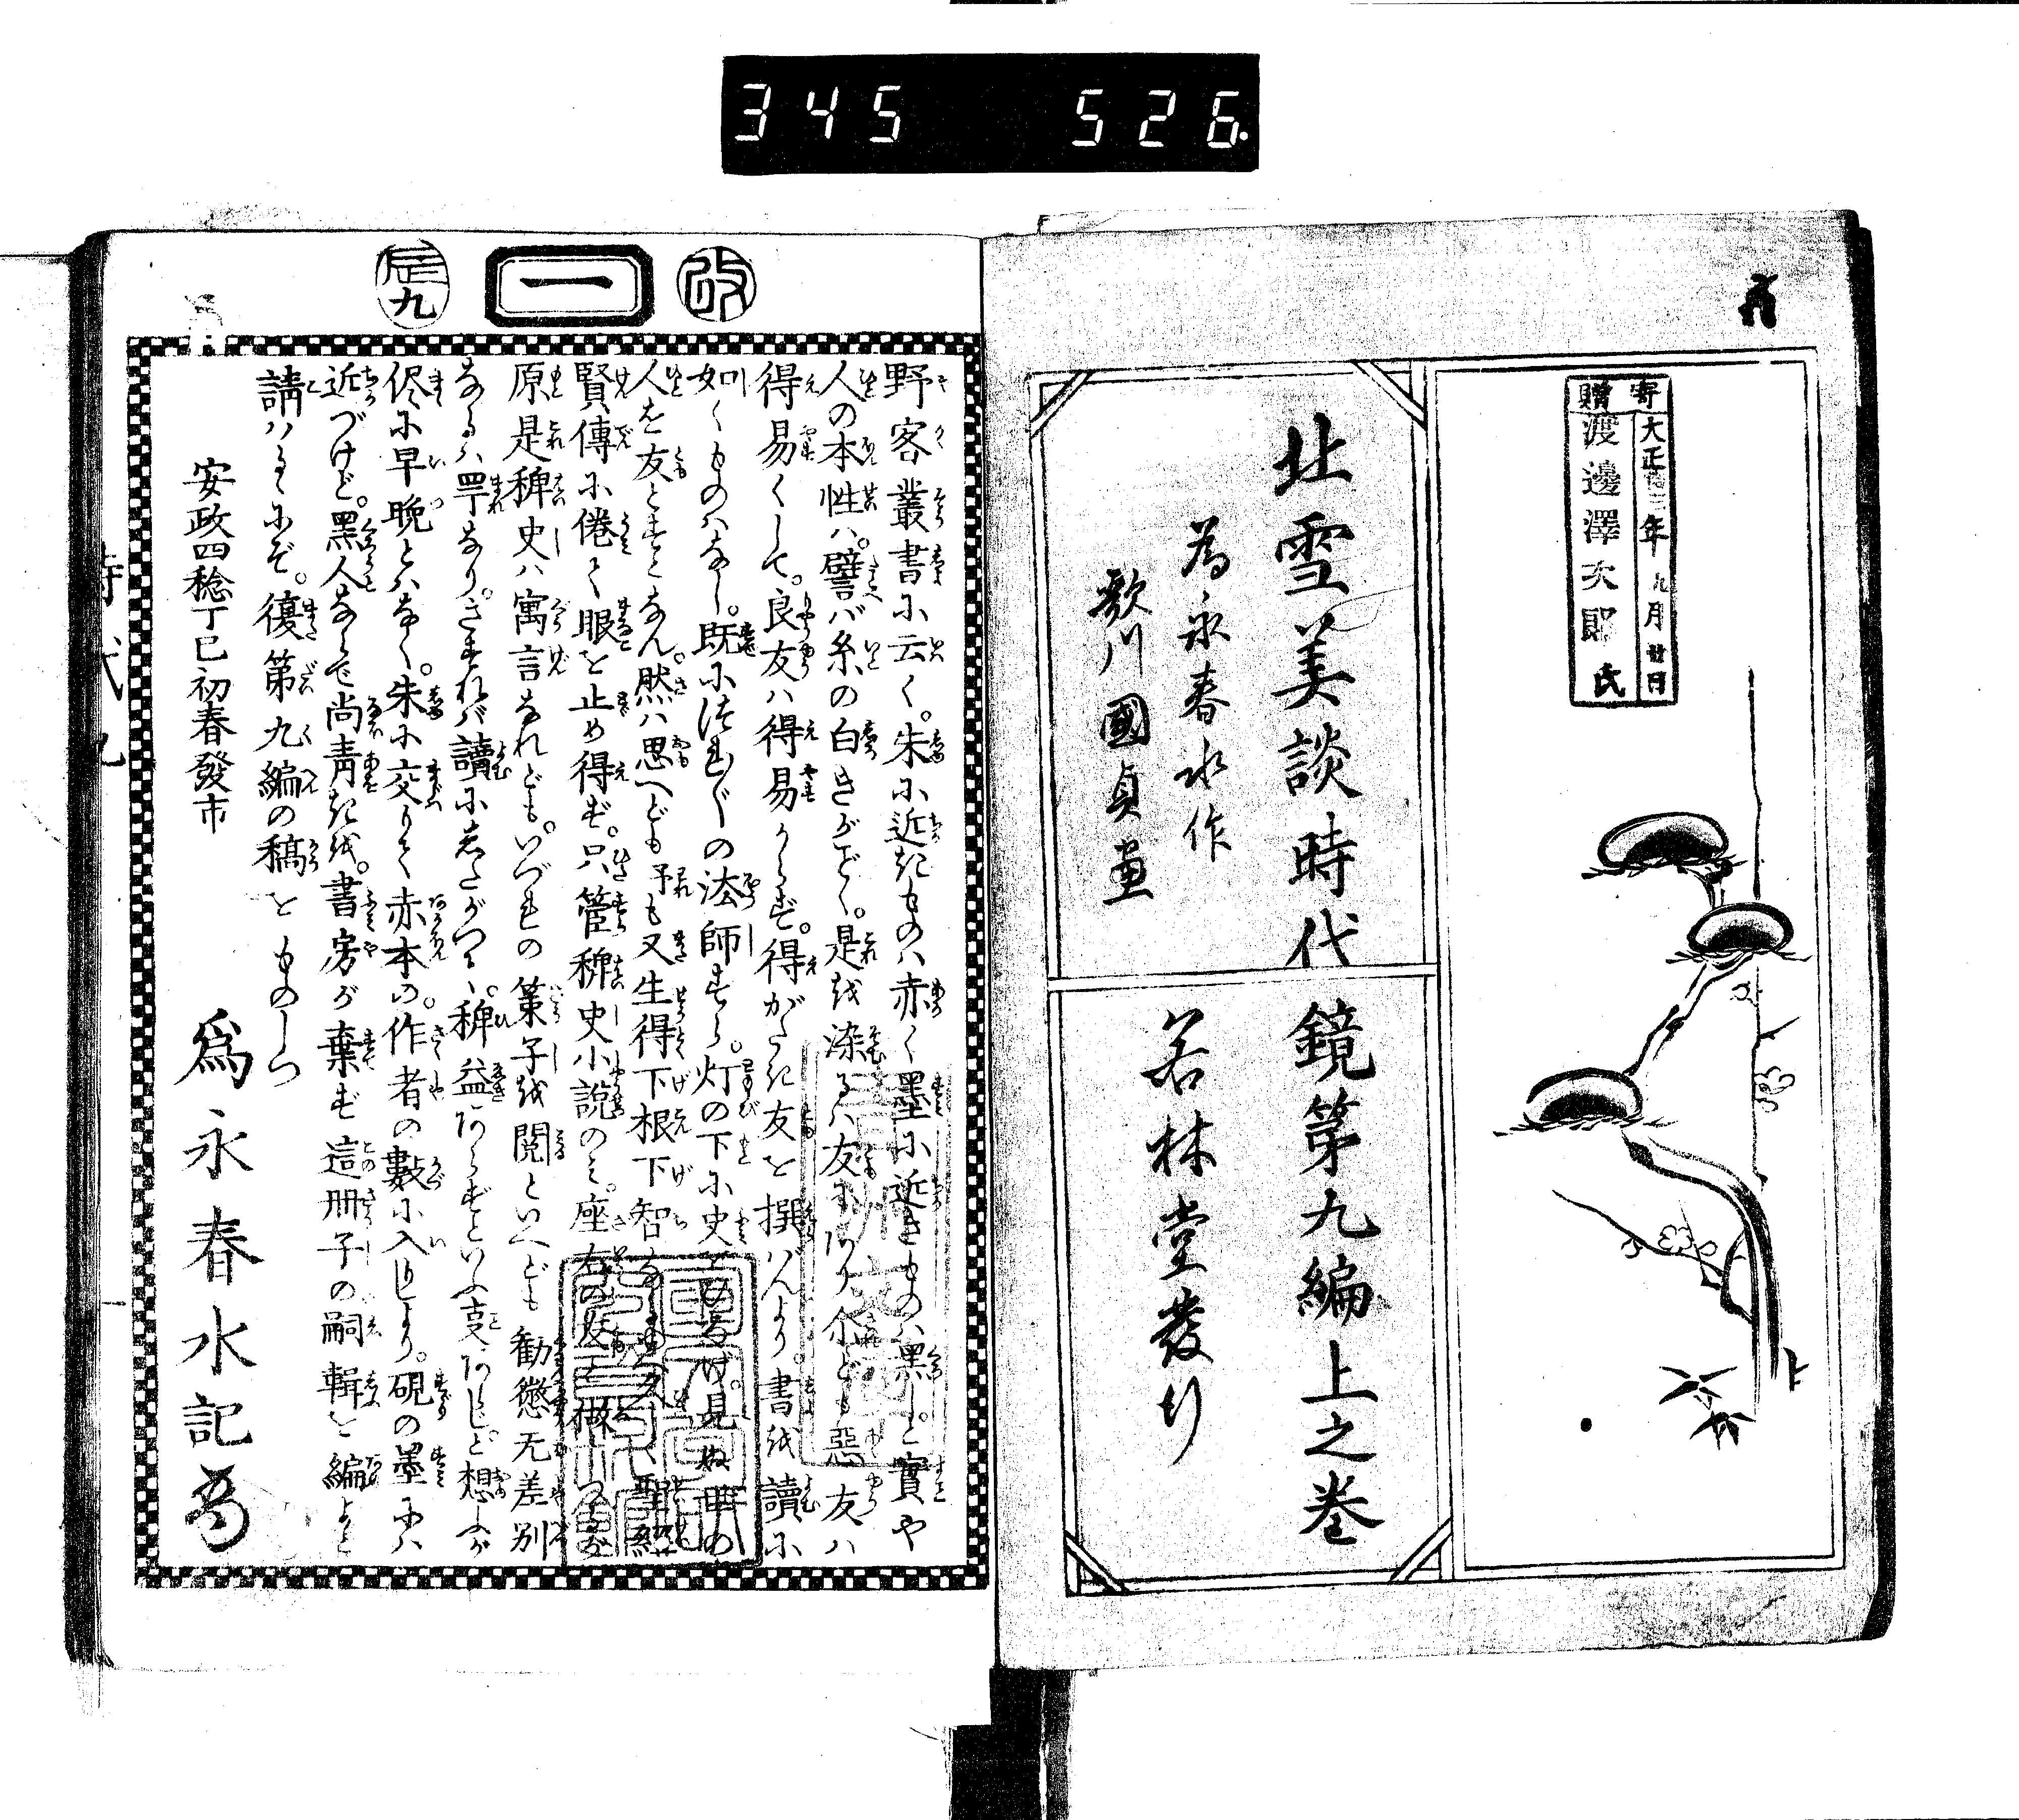 345 526
寄贈
大正十三年九月廿日
渡邊澤次郎氏
北雪美談時代鏡第九編上之巻
為永春水作
歌川國貞画
若林堂發行
改
一
辰九
野客叢書に云く。朱に近きものは赤く墨に近きものは黒しと實や
人の本性は。譬ば糸の白きがごとく。是を染るは友にあり尓ども惡友は
得易くして。良友は得易からず。得がたき友を撰ばんより。書を讀に
如くものはなし。既につれ〴〵の法師すら。灯の下に史を見ぬ世の
人を友とすとなん。然は思へども予も又生得下根下智なれば聖經
賢傳に倦て眼を止め得ず。只管稗史小説のみ。座右の友と做しつるが
原是稗史は寓言なれども。いづれの策子を閲といへども勸懲无差別
なるは罕なり。されば讀にしたがつて、稗益あらずといふ叓あらじと想ふが
侭に早晩とはなく。朱に交りて赤本の。作者の數に入しより。硯の墨には
近づけど。黒人ならで尚青きを。書房が棄ず這册子の嗣輯を編よと
請はるゝにぞ。復第九編の稿をものしつ
安政四稔丁巳初春發市
爲永春水記
時代九